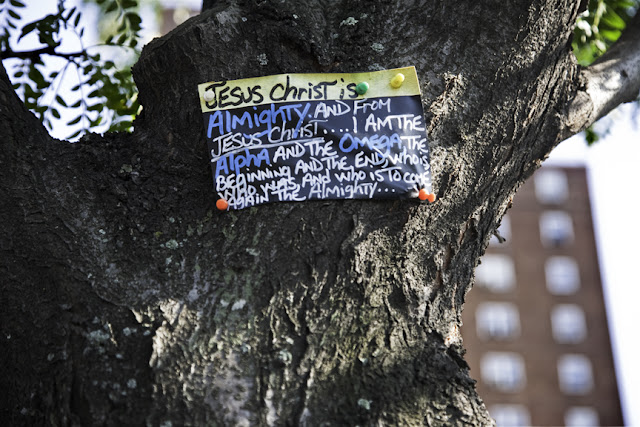 JESUS CHRIST is
AlMigHTY. AND FROM
JESUS CHRIST.... I AM THE
AlpHA AND THE OMEGA, THE
BEGiNNiNG AND THE END, WHO iS
WHO WAS AND WHO iS TO COME
AGAiN THE AlMiGHTY...